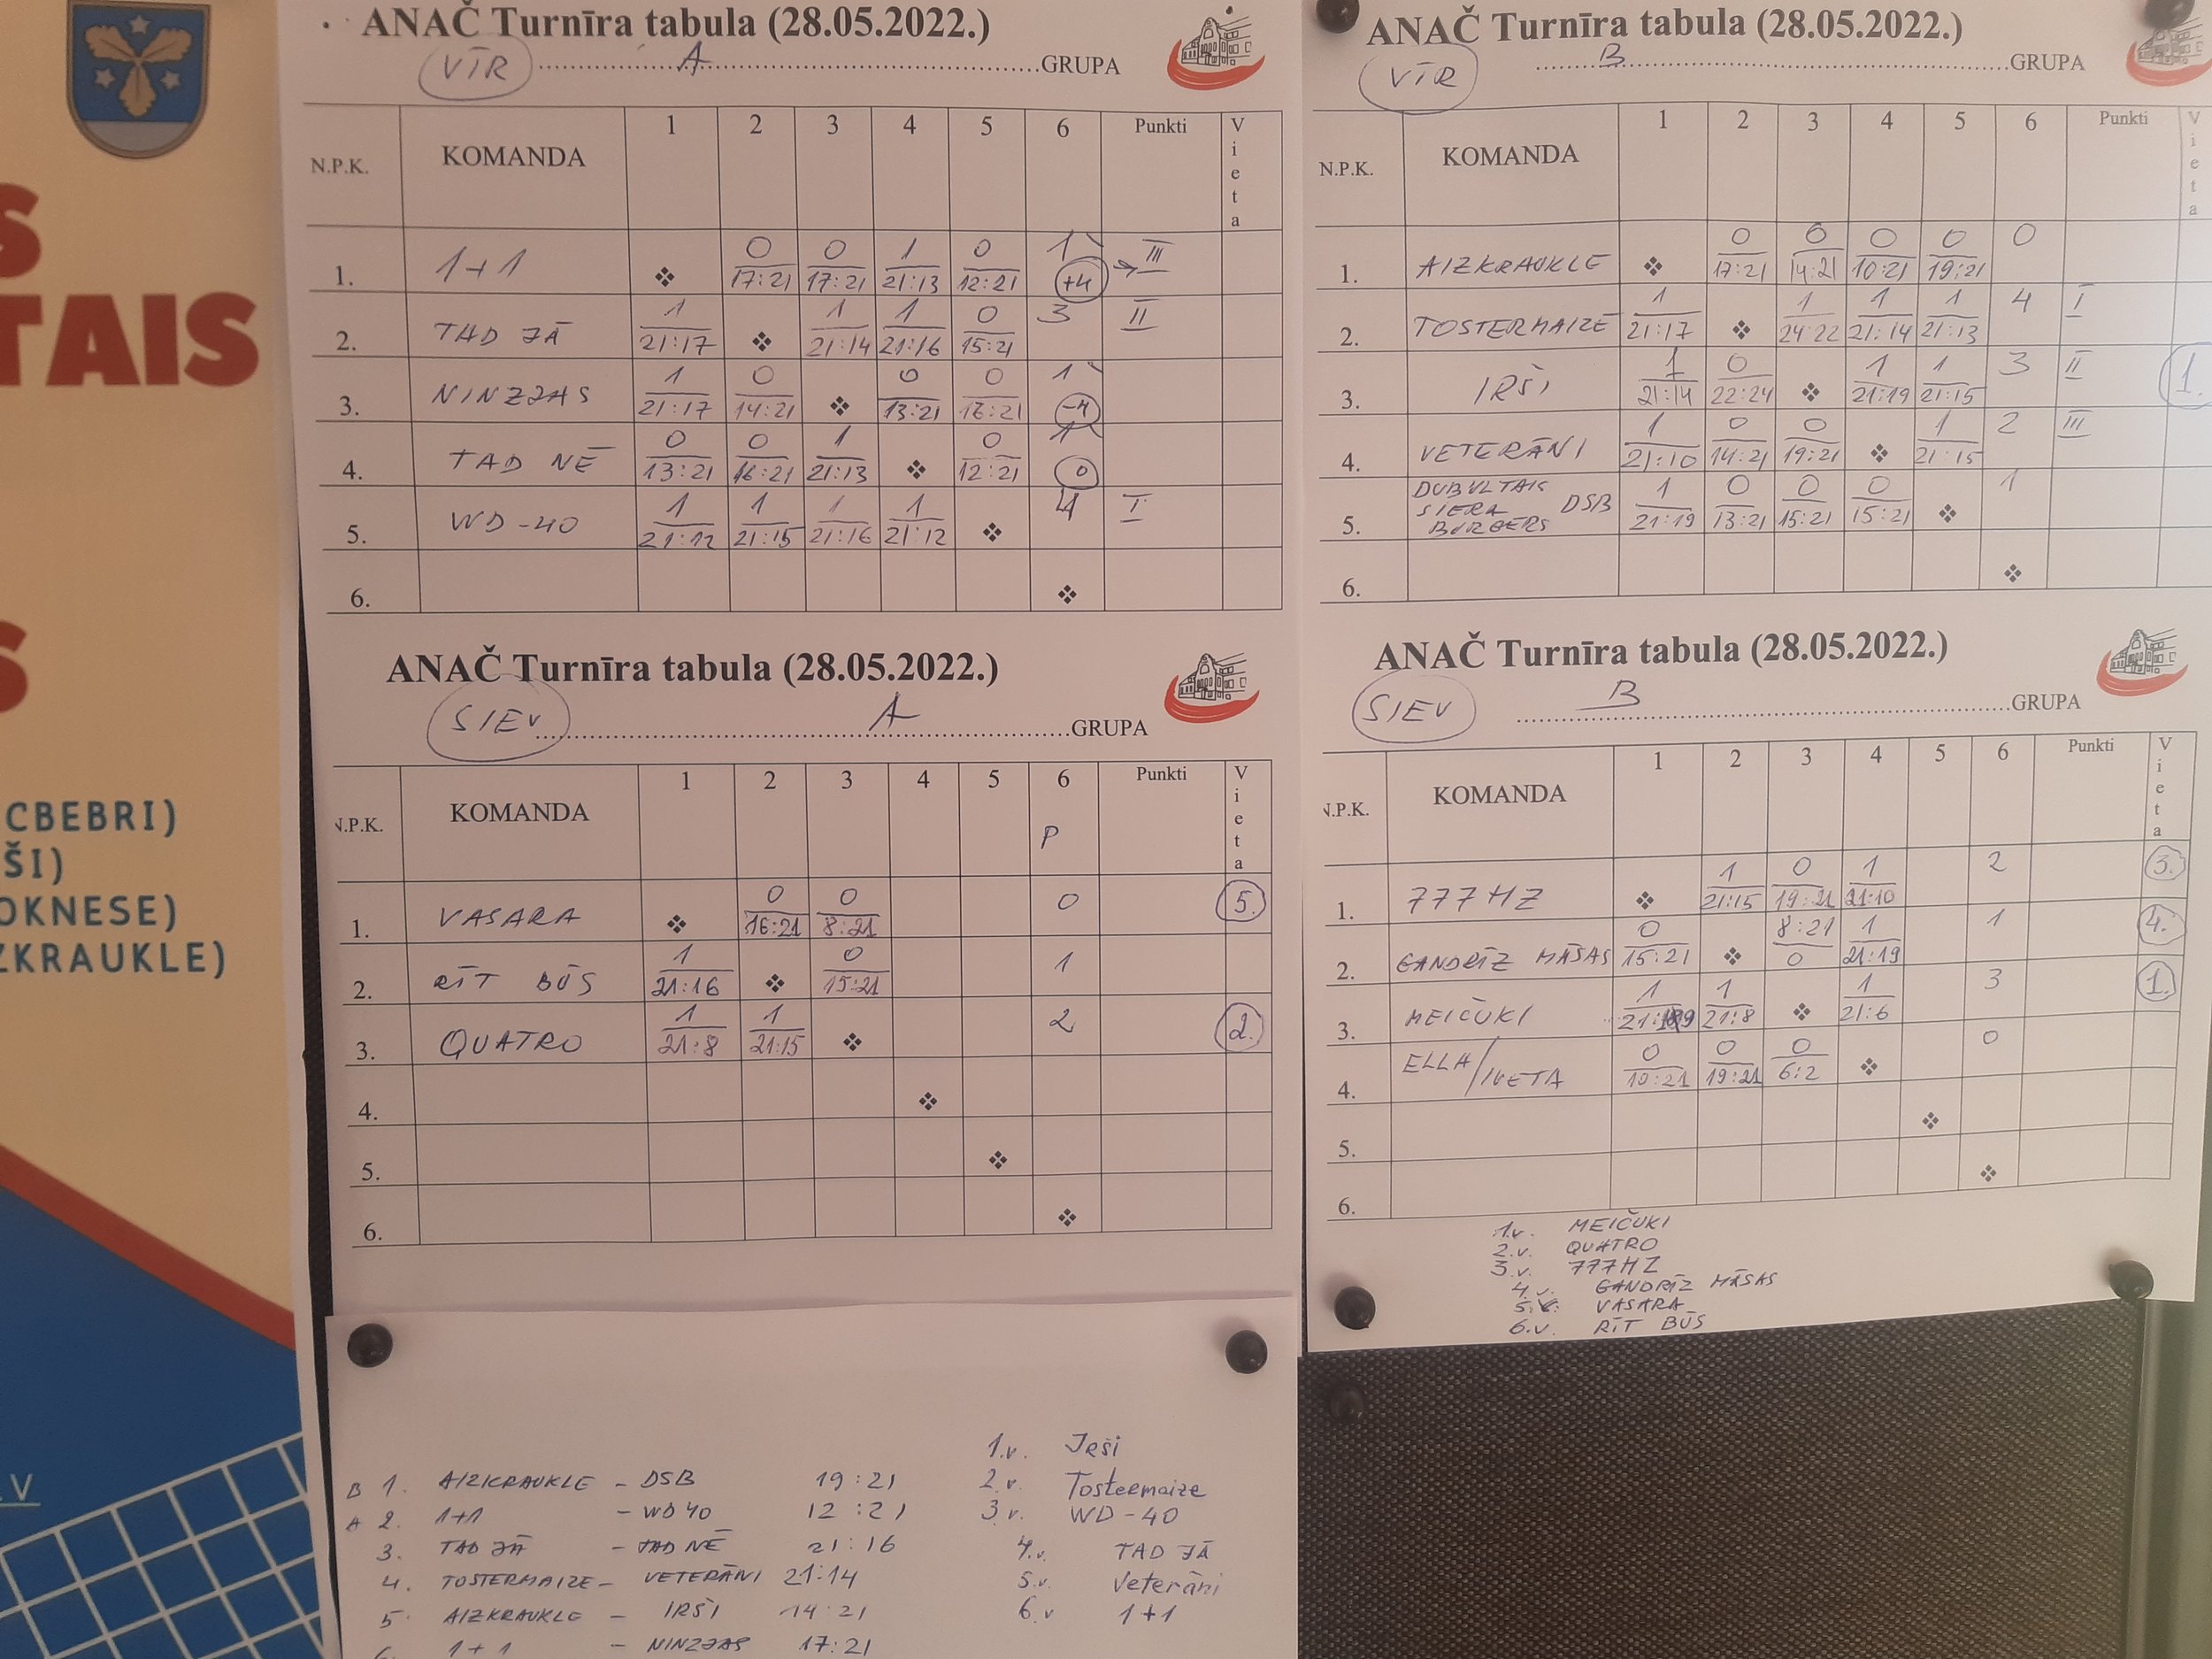 S
TAIS
S
CBEBRI)
ŠI)
OKNESE)
ZKRAUKLE)
.V
ANAČ Turnīra tabula (28.05.2022.)
VĪR A GRUPA
N.P.K. KOMANDA 1 2 3 4 5 6 Punkti Vieta
1. 1+1 0 0 1 0 1 III
17:21 17:21 21:13 12:21 +4
2. TAD JĀ 1 1 1 0 3 II
21:17 21:14 21:16 15:21
3. NINZJAS 1 0 0 0 1
21:17 14:21 13:21 16:21 -4
4. TAD NĒ 0 0 1 0 1
13:21 16:21 21:13 12:21 0
5. WD-40 1 1 1 1 4 I
21:12 21:15 21:16 21:12
6.
ANAČ Turnīra tabula (28.05.2022.)
SIEV A GRUPA
N.P.K. KOMANDA 1 2 3 4 5 6 Punkti Vieta
P
1. VASARA 0 0 0 5.
16:21 8:21
2. RĪT BŪS 1 0 1
21:16 15:21
3. QUATRO 1 1 2 2.
21:8 21:15
4.
5.
6.
B 1. AIZKRAUKLE - DSB 19:21
A 2. 1+1 - WD40 12:21
3. TAD JĀ - TAD NĒ 21:16
4. TOSTERMAIZE - VETERĀNI 21:14
5. AIZKRAUKLE - IRŠI 14:21
6. 1+1 - NINZJAS 17:21
1.v. Irši
2.v. Tostermaize
3.v. WD-40
4.v. TAD JĀ
5.v. Veterāni
6.v 1+1
ANAČ Turnīra tabula (28.05.2022.)
VĪR B GRUPA
N.P.K. KOMANDA 1 2 3 4 5 6 Punkti Vieta
1. AIZKRAUKLE 0 0 0 0 0
17:21 14:21 10:21 19:21
2. TOSTERMAIZE 1 1 1 1 4 I
21:17 24:22 21:14 21:13
3. IRŠI 1 0 1 1 3 II 1.
21:14 22:24 21:19 21:15
4. VETERĀNI 1 0 0 1 2 III
21:10 14:21 19:21 21:15
5. DUBULTAIS SIERA BURGERS DSB 1 0 0 0 1
21:19 13:21 15:21 15:21
6.
ANAČ Turnīra tabula (28.05.2022.)
SIEV B GRUPA
N.P.K. KOMANDA 1 2 3 4 5 6 Punkti Vieta
1. 777HZ 1 0 1 2 3.
21:15 19:21 21:10
2. GANDRĪZ MĀSAS 0 8:21 1 1 4.
15:21 0 21:19
3. MEIČUKI 1 1 1 3 1.
21:19 21:8 21:6
4. ELLA/IVETA 0 0 0 0
10:21 19:21 6:2
5.
6.
1.v. MEIČUKI
2.v. QUATRO
3.v. 777HZ
4.v. GANDRĪZ MĀSAS
5.v. VASARA
6.v. RĪT BŪS